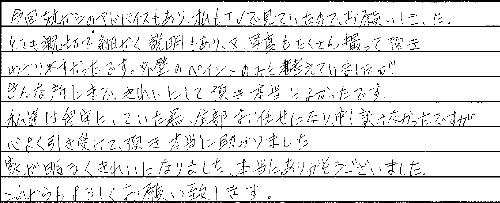 もあり、私もTVで見ていたので、お願いしました。
とても親切で細かく説明もあり、又、写真もたくさん撮って頂き
わかりやすかったです。外壁のペインターのみを考えていましたが
どんな所もきれいにして頂き本当によかったです。
私達は留守にしていた為、全部お任せになり申し訳なかったですが
心よく引き受けて頂き本当に助かりました
家が明るくきれいになりました。本当にありがとうございました。
これからもよろしくお願い致します。